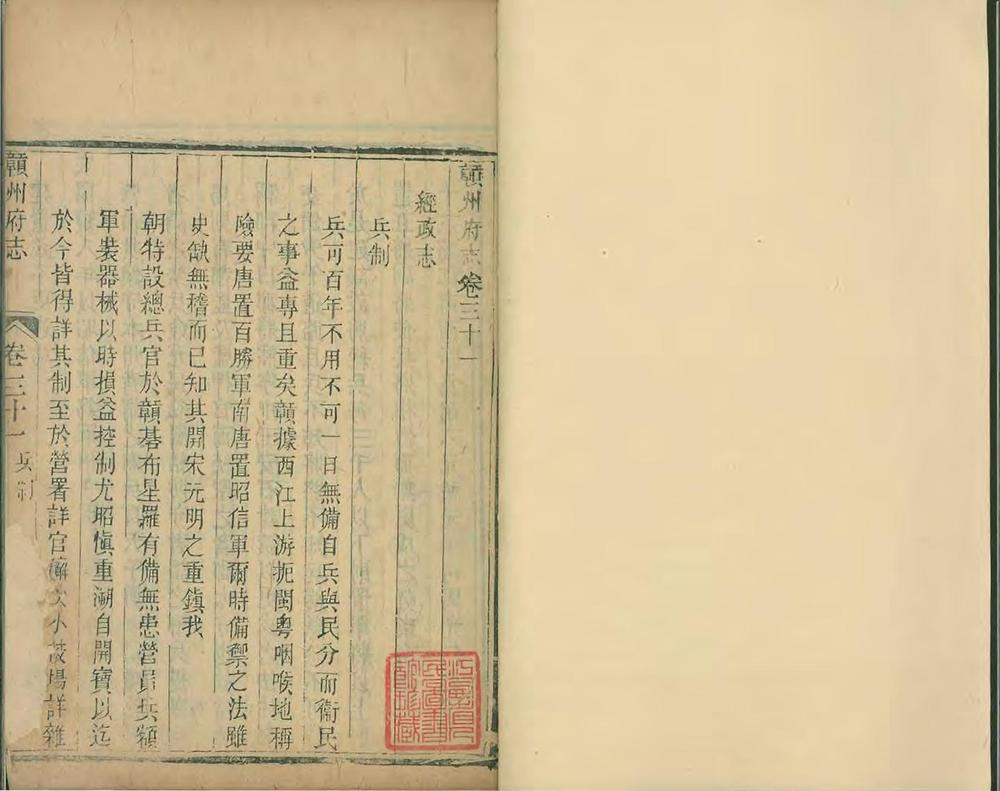 贛州府志卷三十一
經政志
兵制
兵可百年不用不可一日無備自兵與民分而衞民
之事益專且重矣贛據西江上游扼閩粵咽喉地稱
險要唐置百勝軍南唐置昭信軍爾時備禦之法雖
史缺無稽而已知其開宋元明之重鎮我
朝特設總兵官於贛碁布星羅有備無患營員兵額
軍裝器械以時損益控制尤昭慎重溯自開寶以迄
於今皆得詳其制至於營署詳官廨 小 場詳雜
贛州府志
卷三十一
兵制